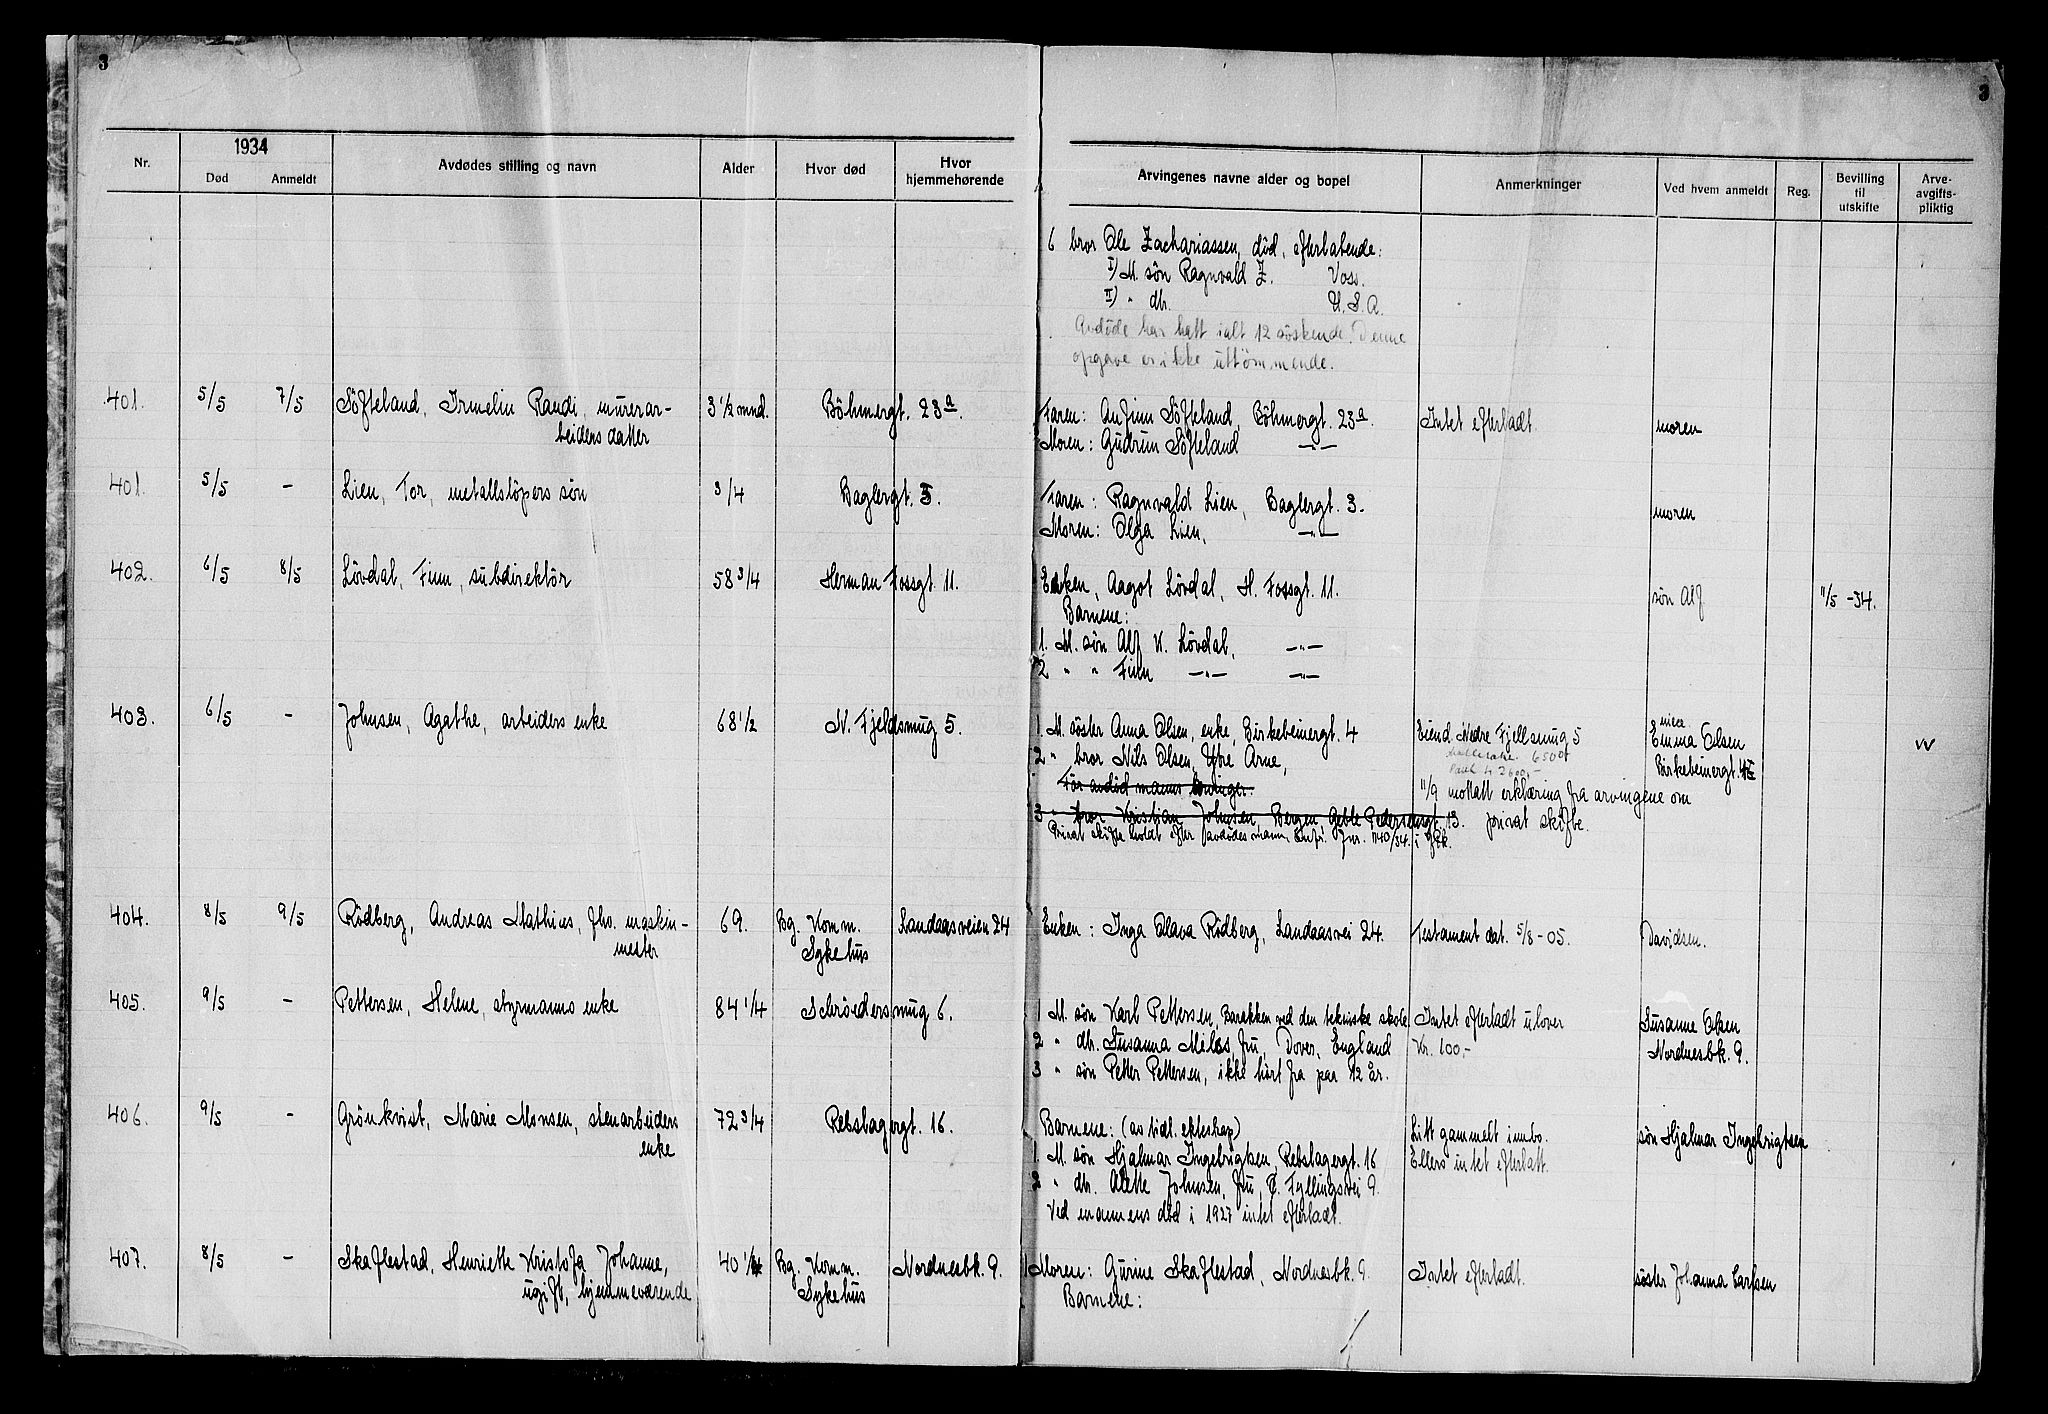 3
3
Nr.
1934
Død
Anmeldt
Avdødes stilling og navn
Alder
Hvor død
Hvor
hjemmehørende
Arvingenes navne alder og bopel
Anmerkninger
Ved hvem anmeldt
Reg.
Bevilling
til
utskifte
Arve-
avgifts-
pliktig
6 bror Ole Zachariassen, död, efterlatende:
I) M. sön Ragnvald Z. Voss.
II) " dtr. U.S.A.
Avdöde har hatt ialt 12 söskende. Denne
opgave er ikke uttömmende.
401. 5/5 7/5 Söfteland, Irmelin Randi, murerar- 3 1/2 mnd. Böhmergt. 23a.
beiders datter
Faren: Anfinn Söfteland, Böhmergt. 23a. Intet efterladt moren
Moren: Gudrun Söfteland —"—
401. 5/5 - Lien, Tor, metallstöpers sön 3/4 Baglergt. 3.
Faren: Ragnvald Lien, Baglergt. 3. moren
Moren: Olga Lien, —"—
402. 6/5 8/5 Lövdal, Finn, subdirektör 58 3/4 Herman Fossgt. 11.
Enken, Aagot Lövdal, H. Fossgt. 11. sön Alf 11/5 -34.
Barnene:
1. M. sön Alf K. Lövdal, —"—
2 " " Finn —"— —"—
403. 6/5 - Johnsen, Agathe, arbeiders enke 68 1/2 N. Fjeldsmug 5.
1. M. söster Anna Olsen, enke, Birkebeinergt. 4 Eiend Nedre Fjellsmug 5 niece
Emma Olsen
2 " bror Nils Olsen, Ytre Arne, 6500 Birkebeinergt. 4 VV
För avdöd manns arvinger. 11/9 mottatt erklæring fra arvingene om
3 " bror Kristian Johnsen, Bergen, Geble Pedersensgt. 13. privat skifte.
Privat skifte holdt efter avdödes mann, Jnr. 1140/34.
404. 8/5 9/5 Rödberg, Andreas Mathias, fhv. maskin- 69. Bg. Komm. Landaasveien 24
mester Sykehus
Enken: Inga Olava Rödberg, Landaasvei 24. Testament dat. 5/8-05. Davidsen.
405. 9/5 - Pettersen, Helene, styrmanns enke 84 1/4 Schröders mug 6.
1 M. sön Karl Pettersen, Barakken ved den tekniske skole Intet efterladt utover Susanne Olsen
2 " dtr. Susanna Miles, fru, Dover, England Kr. 100,- Nordnesbk. 9.
3 " sön Petter Pettersen, ikke hört fra paa 12 år.
406. 9/5 - Grönkvist, Marie Monsen, stenarbeiders 72 3/4 Rebslagergt. 16.
enke
Barnene: (av tidl. ekteskap) Litt gammelt innbo. sön Hjalmar Ingebrigtsen
1. M. sön Hjalmar Ingebrigtsen, Rebslagergt. 16 Ellers intet efterlatt.
2 " dtr. Alette Johnsen, fru, C. Fyllingsvei 9.
Ved mannens död i 1927 intet efterladt.
407. 8/5 - Skaflestad, Henriette Kristofa Johanne, 40 1/4 Bg. Komm. Nordnesbk. 9.
ugift, hjemmeværende Sykehus
Moren: Gurine Skaflestad, Nordnesbk. 9. Intet efterladt. söster Johanna Carlsen
Barnene: